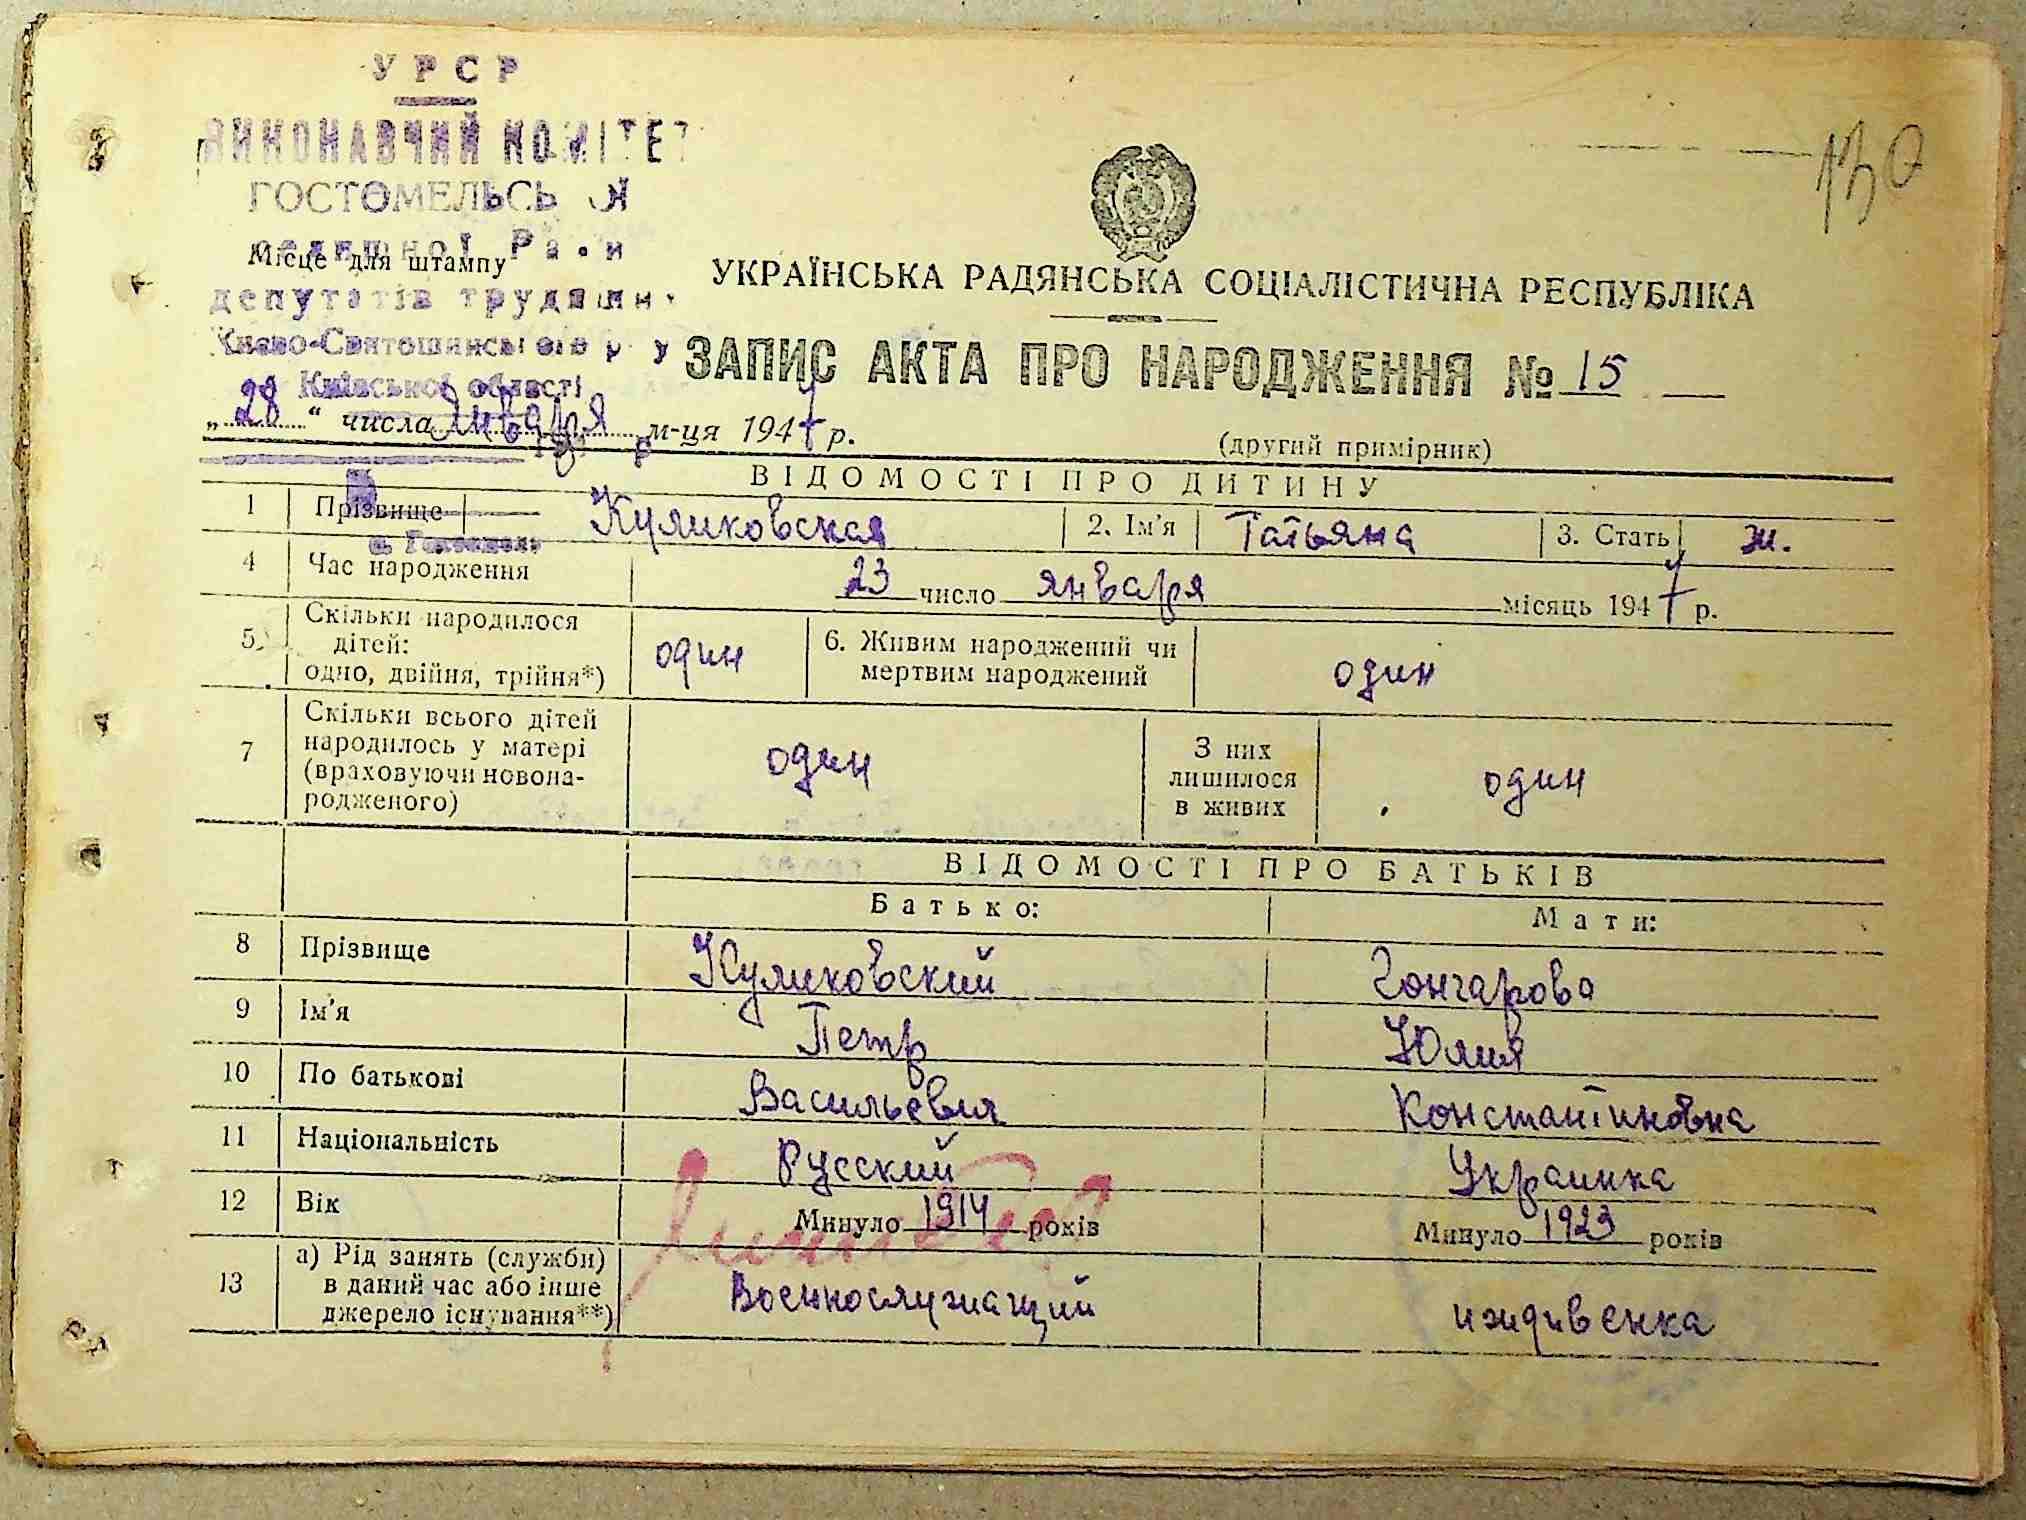 УРСР
ВИКОНАВЧИЙ КОМІТЕТ
ГОСТОМЕЛЬСЬ Й
селищної Ра и
Місце для штампу
депутатів трудящих
Києво-Святошинського р у
Київської області
130
УКРАЇНСЬКА РАДЯНСЬКА СОЦІАЛІСТИЧНА РЕСПУБЛІКА
ЗАПИС АКТА ПРО НАРОДЖЕННЯ № 15
„ 28 “ числа января м-ця 1947 р.
(другий примірник)
ВІДОМОСТІ ПРО ДИТИНУ
1 Прізвище Куликовская 2. Ім'я Татьяна 3. Стать ж.
4 Час народження 23 число января місяць 1947 р.
5 Скільки народилося дітей: одно, двійня, трійня*) один 6. Живим народжений чи мертвим народжений один
7 Скільки всього дітей народилось у матері (враховуючи новонародженого) один З них лишилося в живих один
ВІДОМОСТІ ПРО БАТЬКІВ
Батько: Мати:
8 Прізвище Куликовский Гончарова
9 Ім'я Петр Юлия
10 По батькові Васильевич Константиновна
11 Національність Русский Украинка
12 Вік Минуло 1914 років Минуло 1923 років
13 а) Рід занять (служби) в даний час або інше джерело існування**) Военнослужащий иждивенка